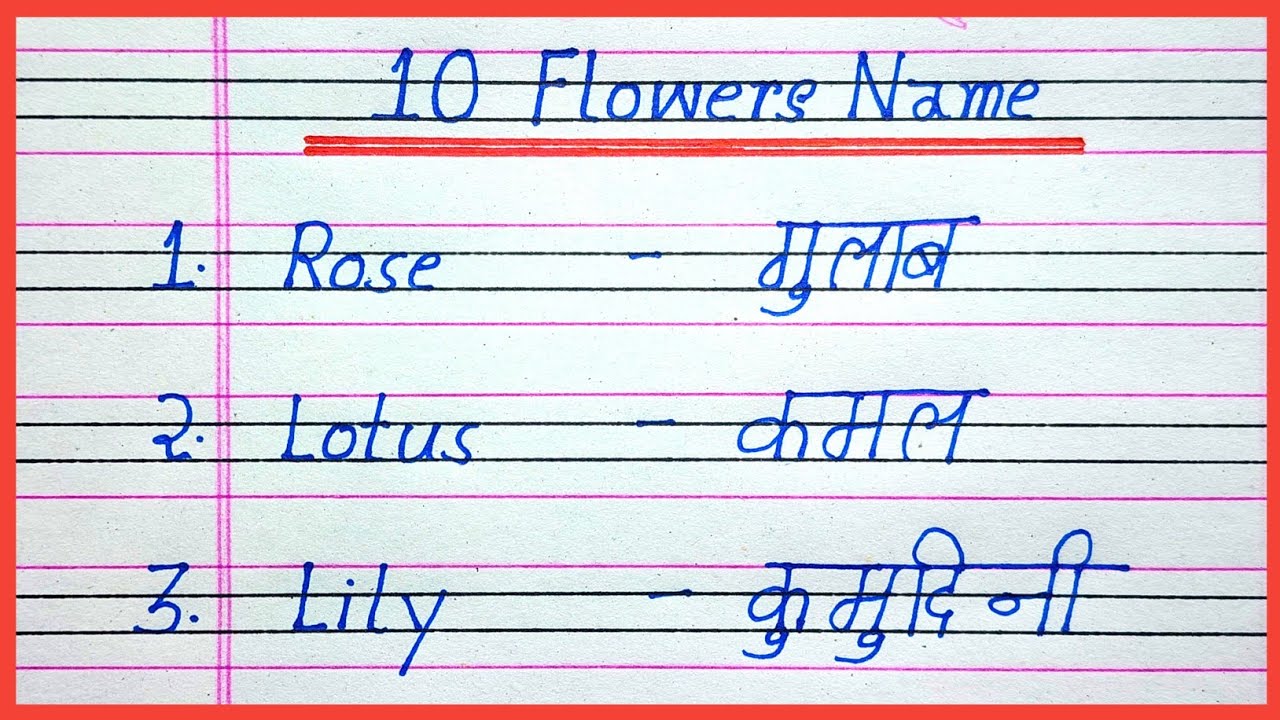 10 Flowers Name
1. Rose - गुलाब
2. Lotus - कमल
3. Lily - कुमुदिनी